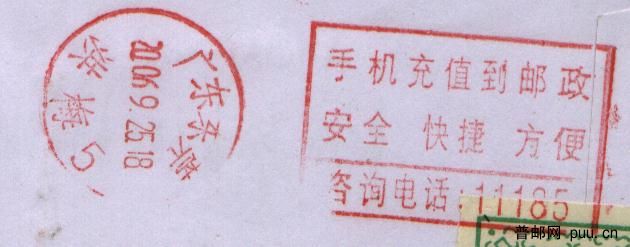 广东乐
2006.9.25.18
梅
5
手机充值到邮政
安全 快捷 方便
咨询电话:11185
普邮网 puu.cn